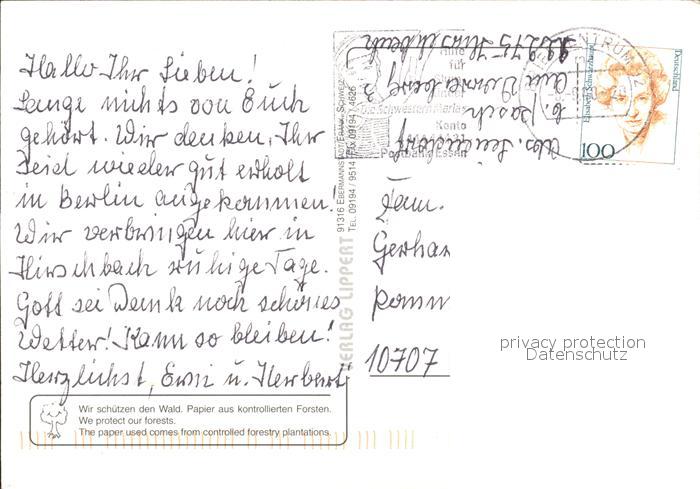 Hallo Ihr Lieben!
Lange nichts von Euch
gehört. Wir denken, Ihr
seid wieder gut erholt
in Berlin angekommen!
Wir verbringen hier in
Hirschbach ruhige Tage.
Gott sei Dank noch schönes
Wetter! Kann so bleiben!
Herzlichst, Erni u. Herbert
Wir schützen den Wald. Papier aus kontrollierten Forsten.
We protect our forests.
The paper used comes from controlled forestry plantations.
VERLAG LIPPERT
91316 EBERMANNSTADT/FRÄNK. SCHWEIZ
TEL. 09194 / 9514 FAX 09194 / 4626
Hilfe
für
Konto
Postbank Essen
ZENTRUM
Deutschland
100
Fam.
10707
privacy protection
Datenschutz
92275 Hirschbach